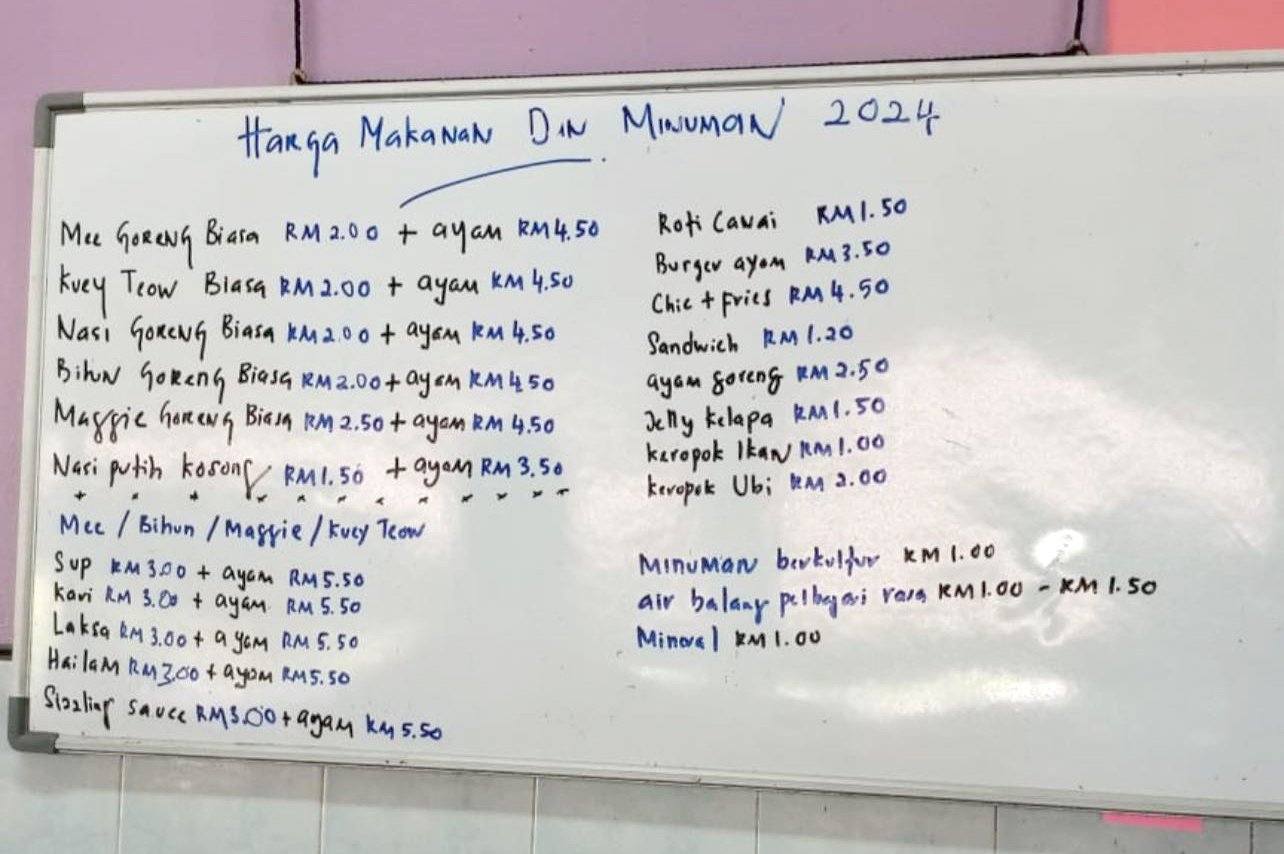 Harga Makanan Dan Minuman 2024
Mee Goreng Biasa RM 2.00 + ayam RM 4.50
Kuey Teow Biasa RM 2.00 + ayam RM 4.50
Nasi Goreng Biasa RM 2.00 + ayam RM 4.50
Bihun Goreng Biasa RM 2.00 + ayam RM 4.50
Maggie Goreng Biasa RM 2.50 + ayam RM 4.50
Nasi putih kosong RM 1.50 + ayam RM 3.50
Mee / Bihun / Maggie / Kuey Teow
Sup RM 3.00 + ayam RM 5.50
Kari RM 3.00 + ayam RM 5.50
Laksa RM 3.00 + ayam RM 5.50
Hailam RM 3.00 + ayam RM 5.50
Sizzling sauce RM 3.00 + ayam RM 5.50
Roti Canai RM 1.50
Burger ayam RM 3.50
Chic + Fries RM 4.50
Sandwich RM 1.20
ayam goreng RM 2.50
Jelly kelapa RM 1.50
keropok Ikan RM 1.00
keropok Ubi RM 2.00
Minuman berkultur RM 1.00
air balang pelbagai rasa RM 1.00 - RM 1.50
Mineral RM 1.00